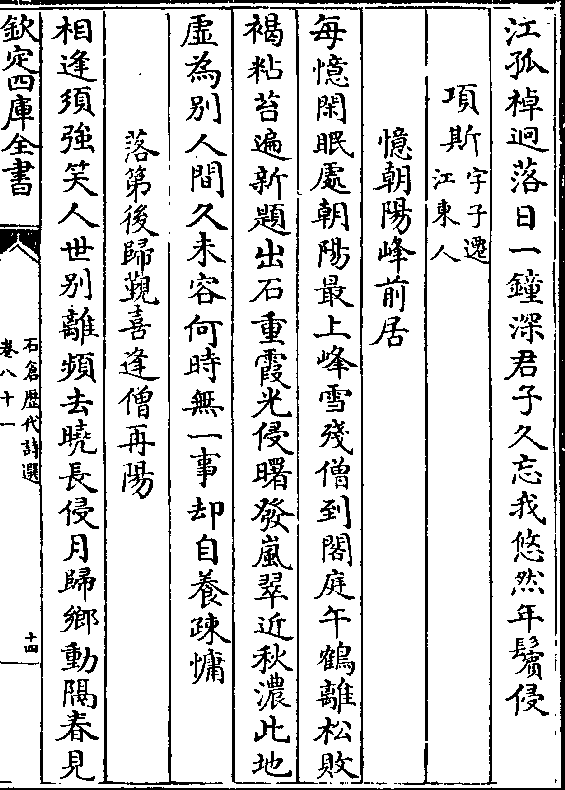 江孤棹迥落日一鐘深君子久忘我悠然年鬢侵
項斯字子遷江東人
憶朝陽峰前居
每憶閑眠處朝陽最上峰雪殘僧到閣庭午鶴離松敗
褐粘苔遍新題出石重霞光侵曙發嵐翠近秋濃此地
虛為別人間久未容何時無一事却自養疎慵
落第後歸覲喜逢僧再陽
相逢須強笑人世别離頻去曉長侵月歸鄉動隔春見
欽定四庫全書
石倉歷代詩選
卷八十一
十四